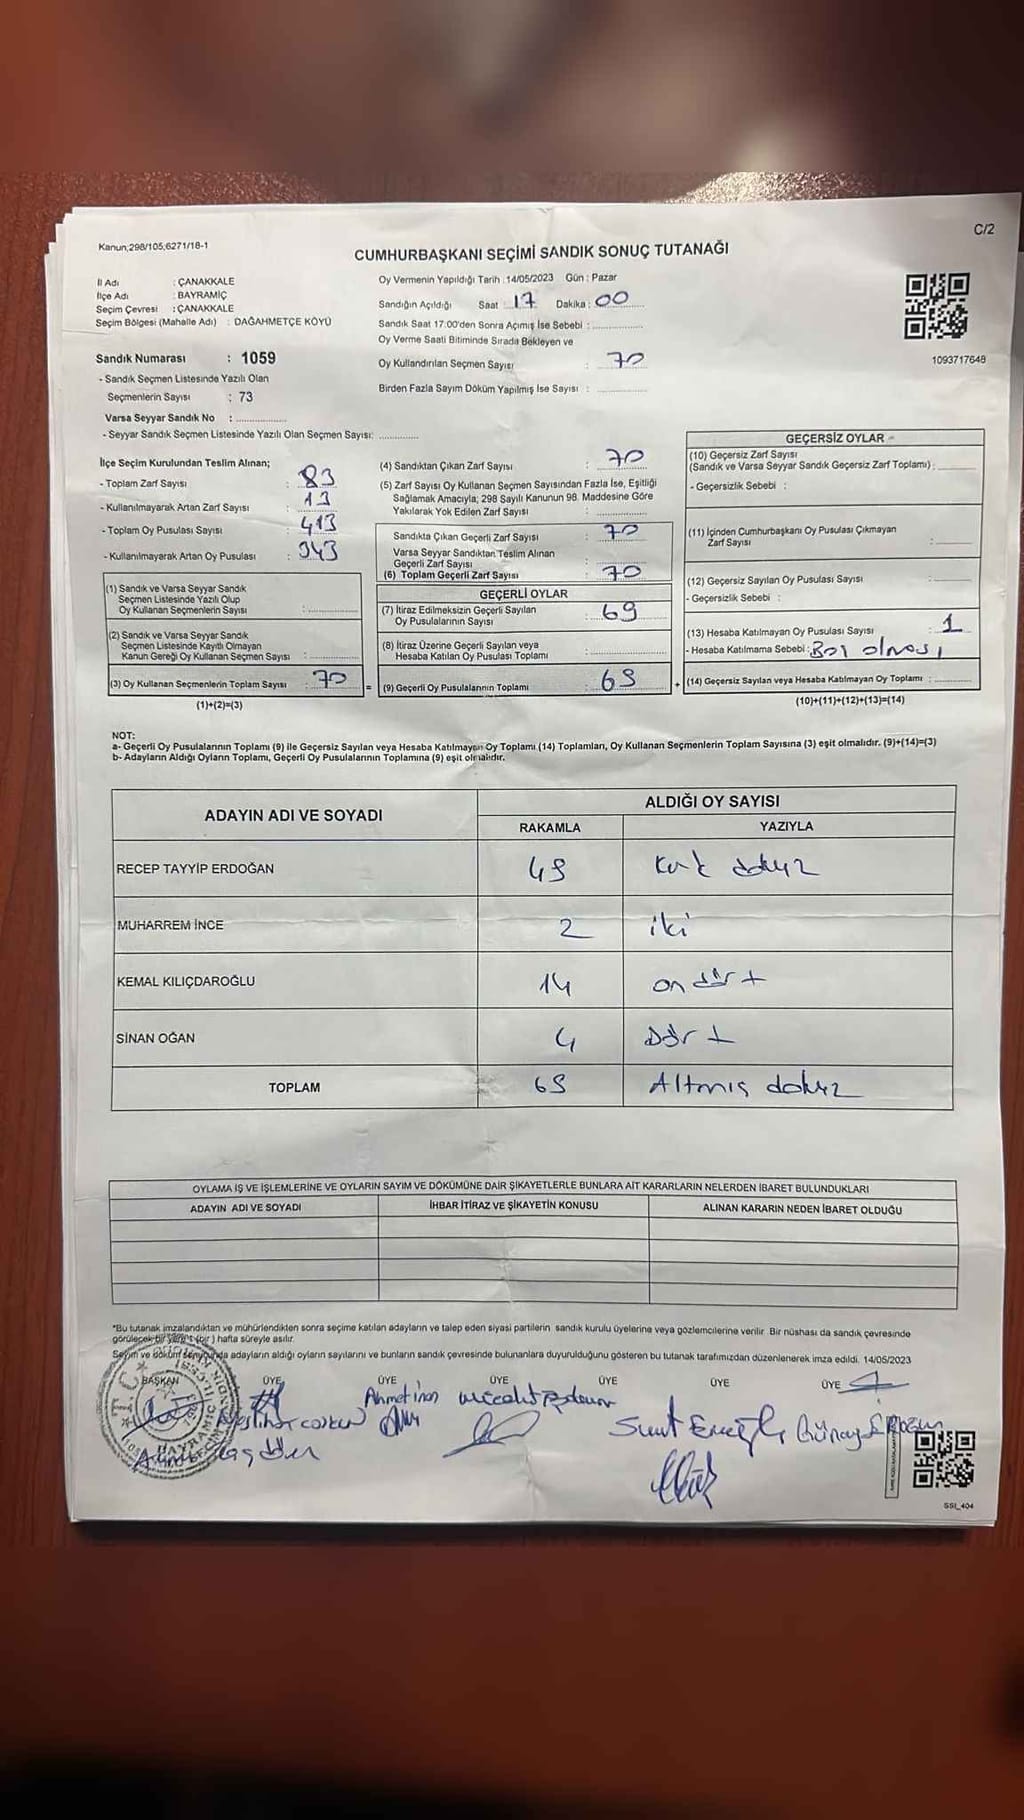 C/2
Kanun;298/105;6271/18-1
CUMHURBAŞKANI SEÇİMİ SANDIK SONUÇ TUTANAĞI
İl Adı : ÇANAKKALE
İlçe Adı : BAYRAMİÇ
Seçim Çevresi : ÇANAKKALE
Seçim Bölgesi (Mahalle Adı) : DAĞAHMETÇE KÖYÜ
Sandık Numarası : 1059
- Sandık Seçmen Listesinde Yazılı Olan
Seçmenlerin Sayısı : 73
Varsa Seyyar Sandık No :
- Seyyar Sandık Seçmen Listesinde Yazılı Olan Seçmen Sayısı:
Oy Vermenin Yapıldığı Tarih :14/05/2023 Gün : Pazar
Sandığın Açıldığı Saat : 17 Dakika : 00
Sandık Saat 17:00'den Sonra Açılmış İse Sebebi :
Oy Verme Saati Bitiminde Sırada Bekleyen ve
Oy Kullandırılan Seçmen Sayısı : 70
Birden Fazla Sayım Döküm Yapılmış İse Sayısı :
1093717648
İlçe Seçim Kurulundan Teslim Alınan;
- Toplam Zarf Sayısı : 83
- Kullanılmayarak Artan Zarf Sayısı : 13
- Toplam Oy Pusulası Sayısı : 413
- Kullanılmayarak Artan Oy Pusulası : 343
(1) Sandık ve Varsa Seyyar Sandık
Seçmen Listesinde Yazılı Olup
Oy Kullanan Seçmenlerin Sayısı :
(2) Sandık ve Varsa Seyyar Sandık
Seçmen Listesinde Kayıtlı Olmayan
Kanun Gereği Oy Kullanan Seçmen Sayısı :
(3) Oy Kullanan Seçmenlerin Toplam Sayısı : 70
(1)+(2)=(3)
=
(4) Sandıktan Çıkan Zarf Sayısı : 70
(5) Zarf Sayısı Oy Kullanan Seçmen Sayısından Fazla İse, Eşitliği
Sağlamak Amacıyla; 298 Sayılı Kanunun 98. Maddesine Göre
Yakılarak Yok Edilen Zarf Sayısı :
Sandıkta Çıkan Geçerli Zarf Sayısı : 70
Varsa Seyyar Sandıktan Teslim Alınan
Geçerli Zarf Sayısı :
(6) Toplam Geçerli Zarf Sayısı : 70
GEÇERLİ OYLAR
(7) İtiraz Edilmeksizin Geçerli Sayılan
Oy Pusulalarının Sayısı : 69
(8) İtiraz Üzerine Geçerli Sayılan veya
Hesaba Katılan Oy Pusulası Toplamı :
(9) Geçerli Oy Pusulalarının Toplamı : 69
+
GEÇERSİZ OYLAR
(10) Geçersiz Zarf Sayısı
(Sandık ve Varsa Seyyar Sandık Geçersiz Zarf Toplamı) :
- Geçersizlik Sebebi :
(11) İçinden Cumhurbaşkanı Oy Pusulası Çıkmayan
Zarf Sayısı :
(12) Geçersiz Sayılan Oy Pusulası Sayısı :
- Geçersizlik Sebebi :
(13) Hesaba Katılmayan Oy Pusulası Sayısı : 1
- Hesaba Katılmama Sebebi : Boş olması
(14) Geçersiz Sayılan veya Hesaba Katılmayan Oy Toplamı :
(10)+(11)+(12)+(13)=(14)
NOT:
a- Geçerli Oy Pusulalarının Toplamı (9) ile Geçersiz Sayılan veya Hesaba Katılmayan Oy Toplamı (14) Toplamları, Oy Kullanan Seçmenlerin Toplam Sayısına (3) eşit olmalıdır. (9)+(14)=(3)
b- Adayların Aldığı Oyların Toplamı, Geçerli Oy Pusulalarının Toplamına (9) eşit olmalıdır.
ADAYIN ADI VE SOYADI
ALDIĞI OY SAYISI
RAKAMLA YAZIYLA
RECEP TAYYİP ERDOĞAN 49 Kırk dokuz
MUHARREM İNCE 2 iki
KEMAL KILIÇDAROĞLU 14 on dört
SİNAN OĞAN 4 Dört
TOPLAM 69 Altmış dokuz
OYLAMA İŞ VE İŞLEMLERİNE VE OYLARIN SAYIM VE DÖKÜMÜNE DAİR ŞİKAYETLERLE BUNLARA AİT KARARLARIN NELERDEN İBARET BULUNDUKLARI
ADAYIN ADI VE SOYADI İHBAR İTİRAZ VE ŞİKAYETİN KONUSU ALINAN KARARIN NEDEN İBARET OLDUĞU
*Bu tutanak imzalandıktan ve mühürlendikten sonra seçime katılan adayların ve talep eden siyasi partilerin sandık kurulu üyelerine veya gözlemcilerine verilir. Bir nüshası da sandık çevresinde
görülecek bir yere 1 (bir) hafta süreyle asılır.
Seçim ve döküm sonucunda adayların aldığı oyların sayılarını ve bunların sandık çevresinde bulunanlara duyurulduğunu gösteren bu tutanak tarafımızdan düzenlenerek imza edildi. 14/05/2023
BAŞKAN ÜYE ÜYE ÜYE ÜYE ÜYE ÜYE
Ahmet inan
SSI_404